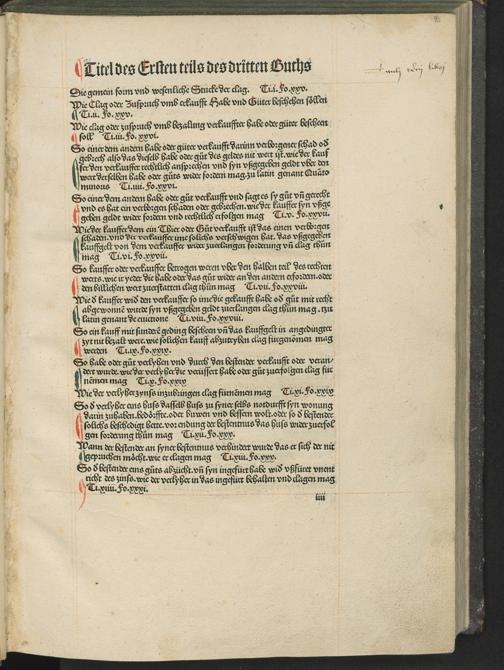 Titel des Ersten teils des dritten Buchs
Die gemein form vnd wesenliche Stucke der clag. Ti.i. Fo.xxv.
Wie Clag oder Zuspruch vmb erkaufft Habe vnd Güter beschehen söllen
Ti.ii. Fo.xxv.
Wie clag oder zuspruch vmb bezalung verkauffter habe oder güter bescheen
soll Ti.iii. Fo.xxvi.
So einer dem andern habe oder güter verkaufft darinn verborgener schad oď
gebrech also das dieselb habe oder gůt des geldes nit wert ist. wie der kauf
fer den verkauffer rechtlich ansprechen vnd syn vßgegeben geldt vber den
wert derselben habe oder gůts wider fordern mag zu latin genant Quāto
minoris Ti.iiii. Fo.xxvi.
So eine dem andern habe oder gůt verkaufft vnd sagt es sy gůt vñ gerecht
vnd es hat ein verborgen schaden oder gebrechen. wie der kauffer syn vßge
geben geldt wider fordern vnd rechtlich erfolgen mag Ti.v. Fo.xxvii.
Wie der kauffer dem ein Thier oder Gůt verkaufft ist das einen verborgen
schaden. vnd der verkauffer im solichs verschwigen hat. das vßgegeben
kauffgelt von dem verkauffer wider zuerlangen forderung vñ clag thůn
mag Ti.vi. Fo.xxvii.
So kauffer oder verkauffer betrogen weren vber den halben teil des rechten
werts. wie ir yeder die habe oder das gůt wider an den andern erfordern. oder
den billichen wert zuerstatten clag thůn mag Ti.vii. Fo.xxviii.
Wie ď kauffer wid den verkauffer so ime die gekaufft habe oď gůt mit recht
abgewonnē wurde syn vßgegeben geldt zuerlangen clag thůn mag. zu
latin genant de euictione Ti.viii. Fo.xxviii.
So ein kauff mit sunderē geding bescheen vñ das kauffgelt in angedingter
zyt nit bezalt wert. wie solichen kauff abzutryben clag furgenomen mag
werden Ti.ix. Fo.xxix.
So habe oder gůt verlyhen vnd durch den bestender verkaufft oder veran-
dert wurde. wie der verlyher die verüssert habe oder gůt zuerfolgen clag fur
nēmen mag Ti.x. Fo.xxix
Wie der verlyher zynß inzubringen clag fürnēmen mag Ti.xi. Fo.xxix
So ď verlyher eins huß dasselb huß zu syner selbs notdurfft syn wonung
darin zuhaben. bedörffte. oder buwen vnd bessern wolt. oder so ď bestender
solichs beschedigt hette. vor endung der bestentnus das huß wider zuerfol
gen forderung thůn mag Ti.xii. Fo.xxx.
Wann der bestender an syner bestentnus verhindert wurde das er sich der nit
gepruchen möcht. wie er clagen mag Ti.xiii. Fo.xxx.
So ď bestender eins gůts abzücht. vñ syn ingefürt habe wid vßfüret vnent
richt des zinß. wie der verlyher in das ingefürt behalten vnd clagen mag
Ti.xiiii. Fo.xxxi.
iiii